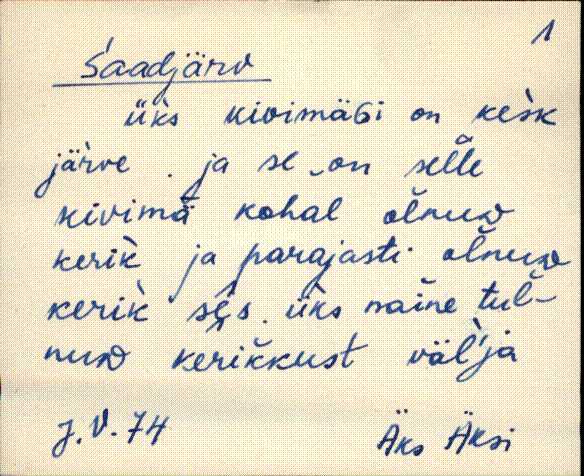 1
Saadjärv
üks kivimägi on kèsk
järve. ja se on selle
kivimä kohal olnuᴅ
kerik ja parajasti olnuᴅ
kerik sēs. üks naine tul-
nuᴅ kerikkust väl'ja
J.V.74 Äks Äksi